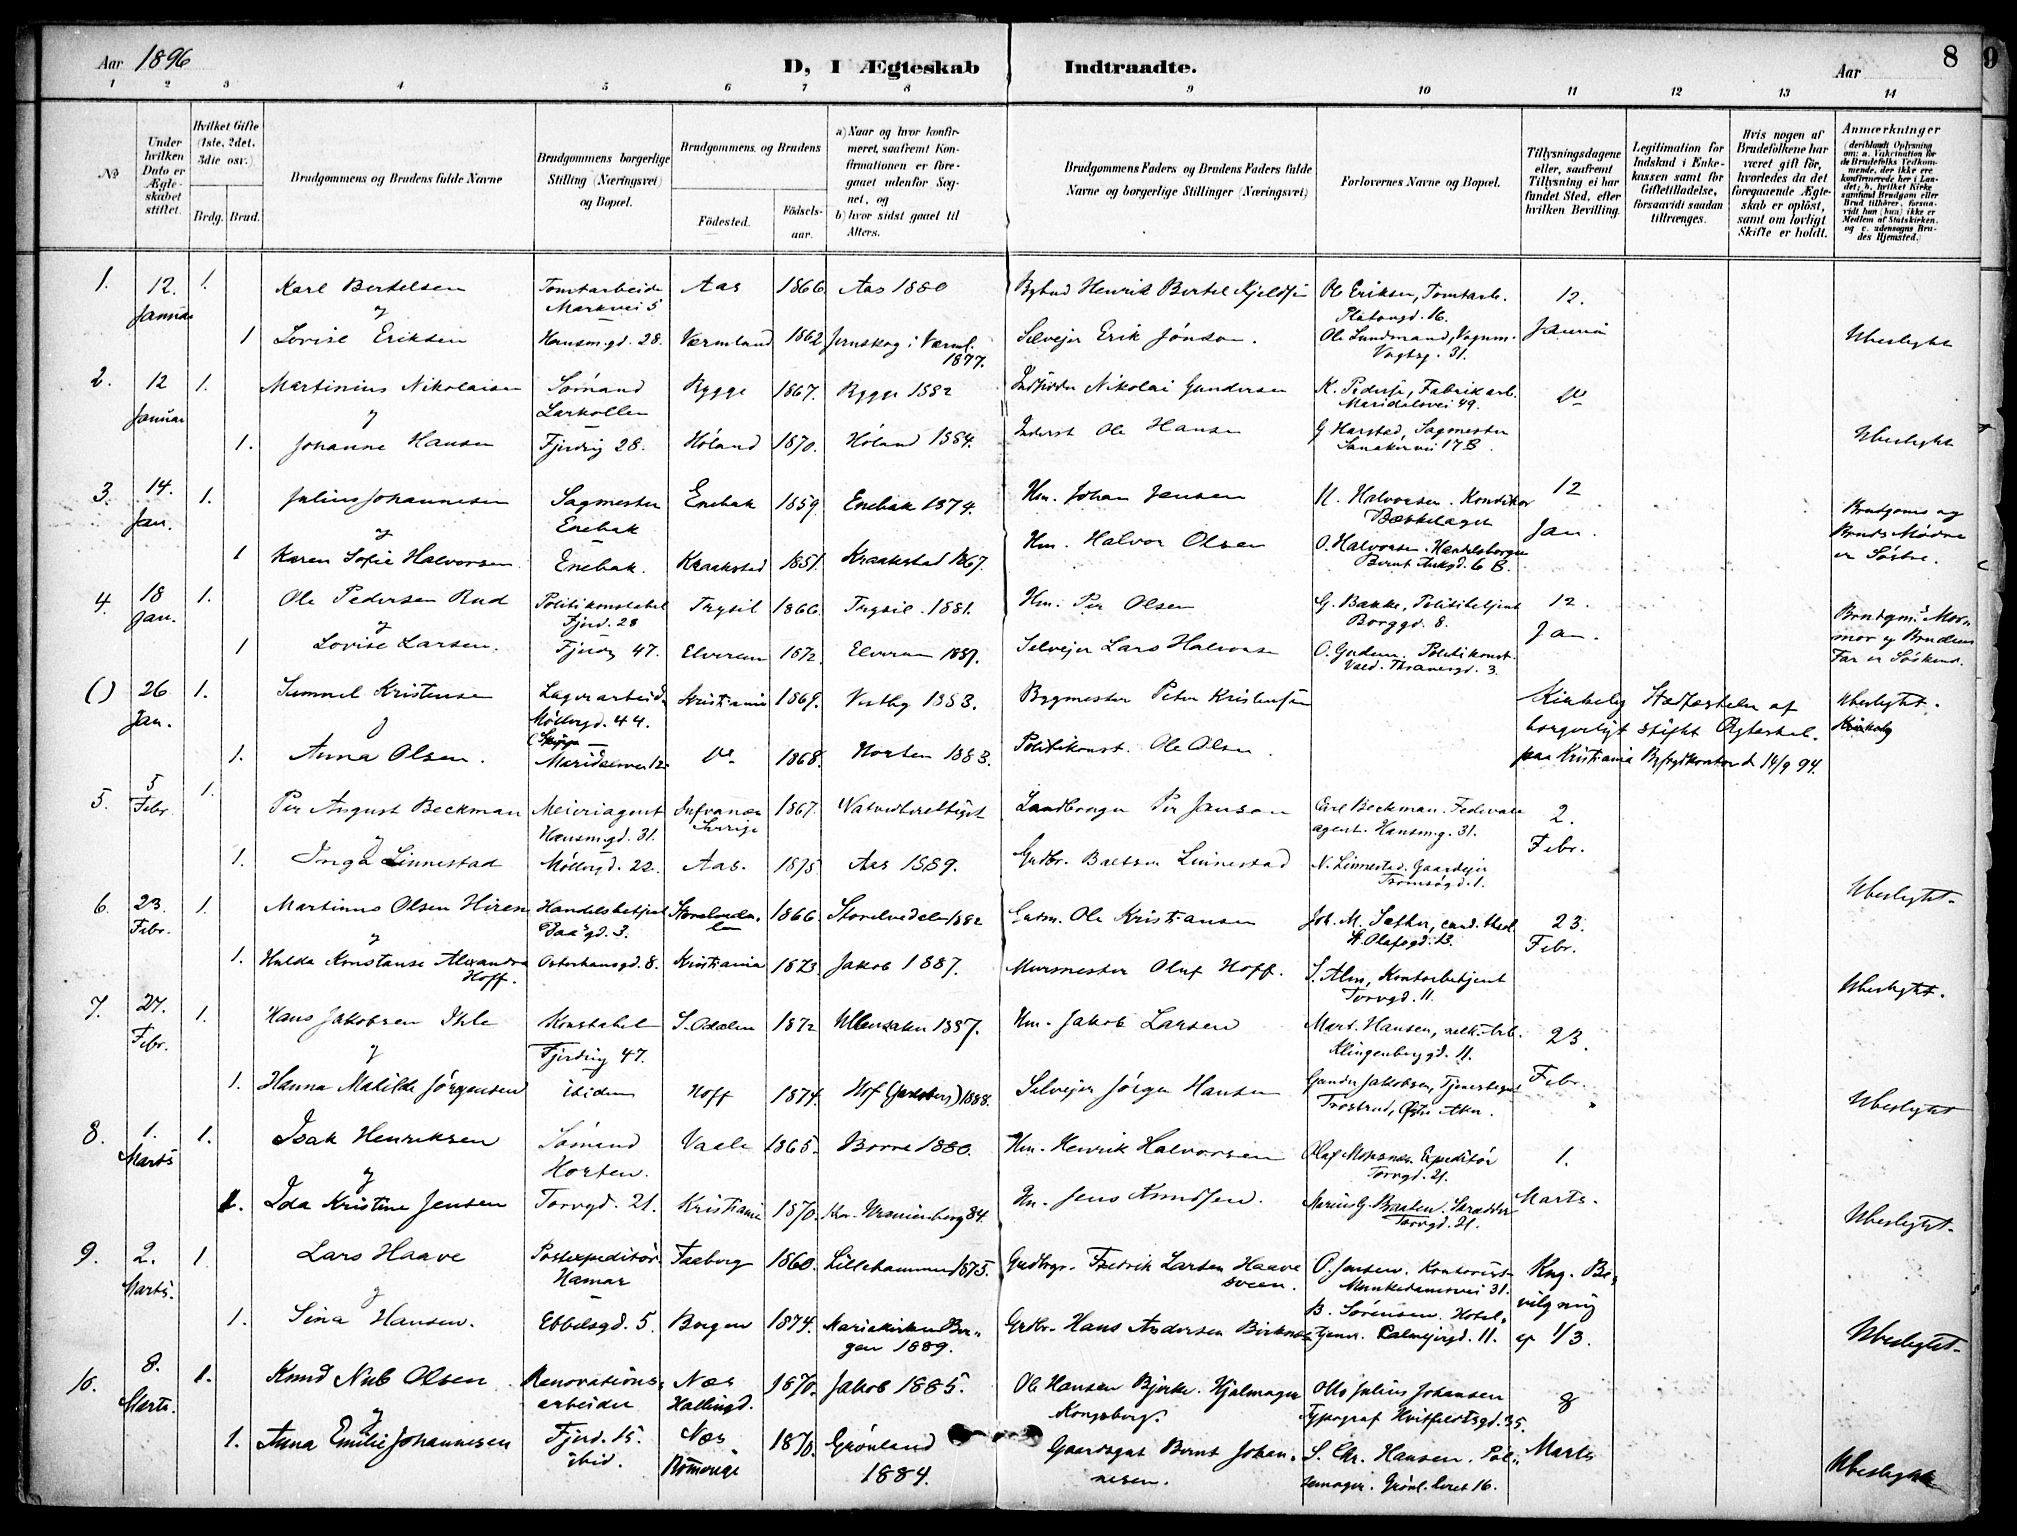 Aar 1896
D, I Ægteskab Indtraadte.
Aar
8
9
1 2 3 4 5 6 7 8 9 10 11 12 13 14
No
Under hvilken Dato er Ægteskabet stiftet.
Hvilket Gifte (1ste, 2det, 3die osv.)
Brdg. Brud.
Brudgommens og Brudens fulde Navne
Brudgommens borgerlige Stilling (Næringsvei) og Bopæl.
Brudgommens og Brudens
Fødested. Fødselsaar.
a) Naar og hvor konfirmeret, saafremt Konfirmationen er foregaaet udenfor Sognet, og
b) hvor sidst gaaet til Alters.
Brudgommens Faders og Brudens Faders fulde Navne og borgerlige Stillinger (Næringsvei)
Forlovernes Navne og Bopæl.
Tillysningsdagene eller, saafremt Tillysning ei har fundet Sted, efter hvilken Bevilling.
Legitimation for Indskud i Enkekassen samt for Giftetilladelse, forsaavidt saadan tiltrænges.
Hvis nogen af Brudefolkene har været gift før, hvorledes da det foregaaende Ægteskab er opløst, samt om lovligt Skifte er holdt.
Anmærkninger
(deriblandt Oplysning om: a. Vakcination for de Brudefolks Vedkommende, der ikke ere konfirmerede her i Landet; b. hvilket Kirkesamfund Brudgom eller Brud tilhører, forsaavidt han (hun) ikke er Medlem af Statskirken, og c. udensogns Brudes Hjemsted.)
1. 12. Januar 1. Karl Bertelsen Tomtarbeider Markvei 5 Aas 1866 Aas 1880 Bybud Henrik Bertel Kjeldsen Ole Eriksen, Tomtarb. Platousgd. 16. 12. Januar
og
1 Lovise Eriksen Hausm.gd. 28. Værmland 1862 Jernskog i Værml. 1877. Selveier Erik Jónson. Ole Lundmand, Vognm. Vogtsg. 31. Ubeslygtet
2. 12 Januar 1. Martinius Nikolaisen Sømand Larkollen Rygge 1867. Rygge 1882 Nikolai Gundersen K. Peders., Fabrikarb. Maridalsvei 49. do
og
1. Johanne Hansen Fjerding 28. Høland 1870. Høland 1884. Inderst Ole Hansen G Harstad, Sagmester Sanakervei 17 B. Ubeslygtet
3. 14. Jan. 1. Julius Johannesen Sagmester Enebak Enebak 1859 Enebak 1874. Hm. Johan Jensen H. Halvorsen. Konduktør Bækkelaget 12 Jan.
og
1 Karen Sofie Halvorsen Enebak. Kraakstad 1851. Kraakstad 1867. Hm. Halvor Olsen O. Halvorsen. Handelsborger Bernt Ankersgd. 6 B. Brudgoms og Bruds Mødre er Søstre.
4. 18 Jan. 1. Ole Pedersen Rud Politikonstabel Fjerd. 28 Trysil 1866 Trysil. 1881. Hm. Per Olsen G. Bakke, Politibetjent Borggd. 8. 12. Jan.
og
1 Lovise Larsen. Fjerding 47. Elverum 1872. Elverum 1887. Selveier Lars Halvorsen O. Politikonst. Vald. Thranesgd. 3 Brudgms Mormor og Brudens Far er Søskend.
() 26 Jan. 1. Samuel Kristensen Lagerarbeider Møllergd. 44. Kristiania 1869. Vestby 1883. Bygmester Peter Kristensen Kirkelig Stadfæstelse af borgerligt stiftet Ægteskab. paa Kristiania Byfogdkontor d. 14/9 94. Ubeslygtet.
og
1. Anna Olsen. Maridalsvei 12 do 1868. Horten 1883. Politikonst. Ole Olsen
5. 5 Febr. 1. Per August Beckman Meieriagent Hausm.gd. 31. Sverige 1867. Landbruger Per Janson Carl Beckman. Fedevareagent. Hausmg. 31. 2. Febr.
og
1. Inga Linnestad Møllergd. 22. Aas. 1875 Aas 1889. Gudbr. Linnestad N. Linnestad. Gaardeier Tromsøgd. 1. Ubeslygtet.
6. 23. Febr. 1. Martinus Olsen Handelsbetjent 3. Storelvedalen 1866 Storelvedalen 1882 Gaardm. Ole Kristiansen Joh. M. Sæther, cand. theol. St. Olafsgd. 13. 23. Febr.
og
1. Hulda Konstanse Alexandra Hoff. Osterhausgd. 8. Kristiania 1873 Jakob 1887. Murmester Oluf Hoff. S. Alm, Kontorbetjent Torvgd. 11. Ubeslygtet.
7. 27. Febr. 1. Hans Jakobsen Ihle Konstabel Fjerding 47. S. Odalen 1872 Ullensaker 1887. Hm. Jakob Larsen Mart. Hansen, Klingenberggd. 11. 23. Febr.
og
1. Hanna Matilde Jørgensen ibidem Hoff 1874. Hof (Jarlsberg) 1888. Selveier Jørgen Hansen Gunder Jakobsen, Østre Aker. Ubeslygtet
8. 1. Marts 1. Isak Henriksen Sømand Horten. Vaale 1865. Borre 1880. Hm. Henrik Halvorsen Olaf Expeditør Torvgd. 21. 1. Marts.
og
1. Ida Kristine Jensen Torvgd. 21. Kristiania 1870. Kr. Uranienborg 84. Hm. Jens Knudsen. Marius G. Braaten. Skrædder Torvgd. 21. Ubeslygtet.
9. 2. Marts. 1 Lars Haave Postexpeditør Hamar Faaberg 1860. Lillehammer 1875. Gudbr. Fredrik Larsen Haave O. Jensen. Kontorist Munkedamsvei 31. Kng. Bevilgning af 1/3
og
1. Sina Hansen. Ebbelsgd. 5. Bergen 1874. Mariekirken Bergen 1889. Hans Andersen B. Sørensen. Hoteltjener. 11. Ubeslygtet.
10. 8. Marts. 1. Knud Nub Olsen Renovationsarbeider Næs Hallingd. 1870. Jakob 1885. Ole Hansen Bjerke. Hjulmager Kongsberg. Otto Julius Johansen Typograf Hvitfeldtsgd. 35. 8 Marts
og
1. Anna Emilie Johannesen Fjerd. 15. ibid. Næs Romerige 1870. Grønland 1884. Gaardsgut Bernt Johannesen. S. Chr. Hansen. Pølsemager. Grønl.leret 16. Ubeslygtet